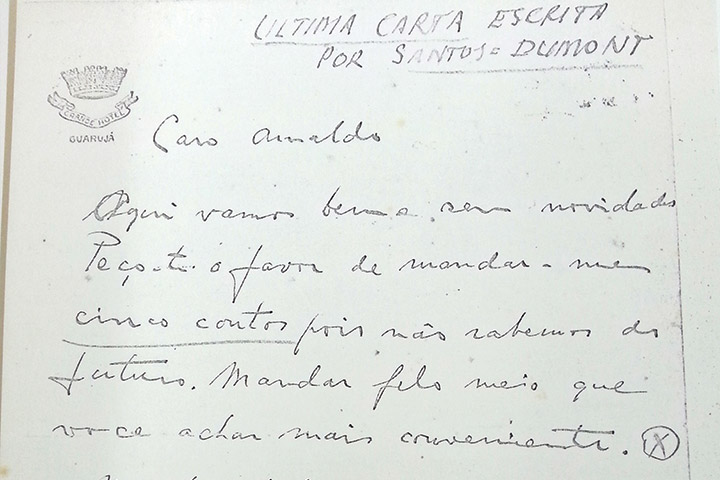 ULTIMA CARTA ESCRITA
POR SANTOS=DUMONT
GRANDE HOTEL
GUARUJÁ
Caro Arnaldo
Aqui vamos bem e sem novidades
Peço-te o favor de mandar-me
cinco contos pois não sabemos do
futuro. Mandar pelo meio que
voce achar mais conveniente. X